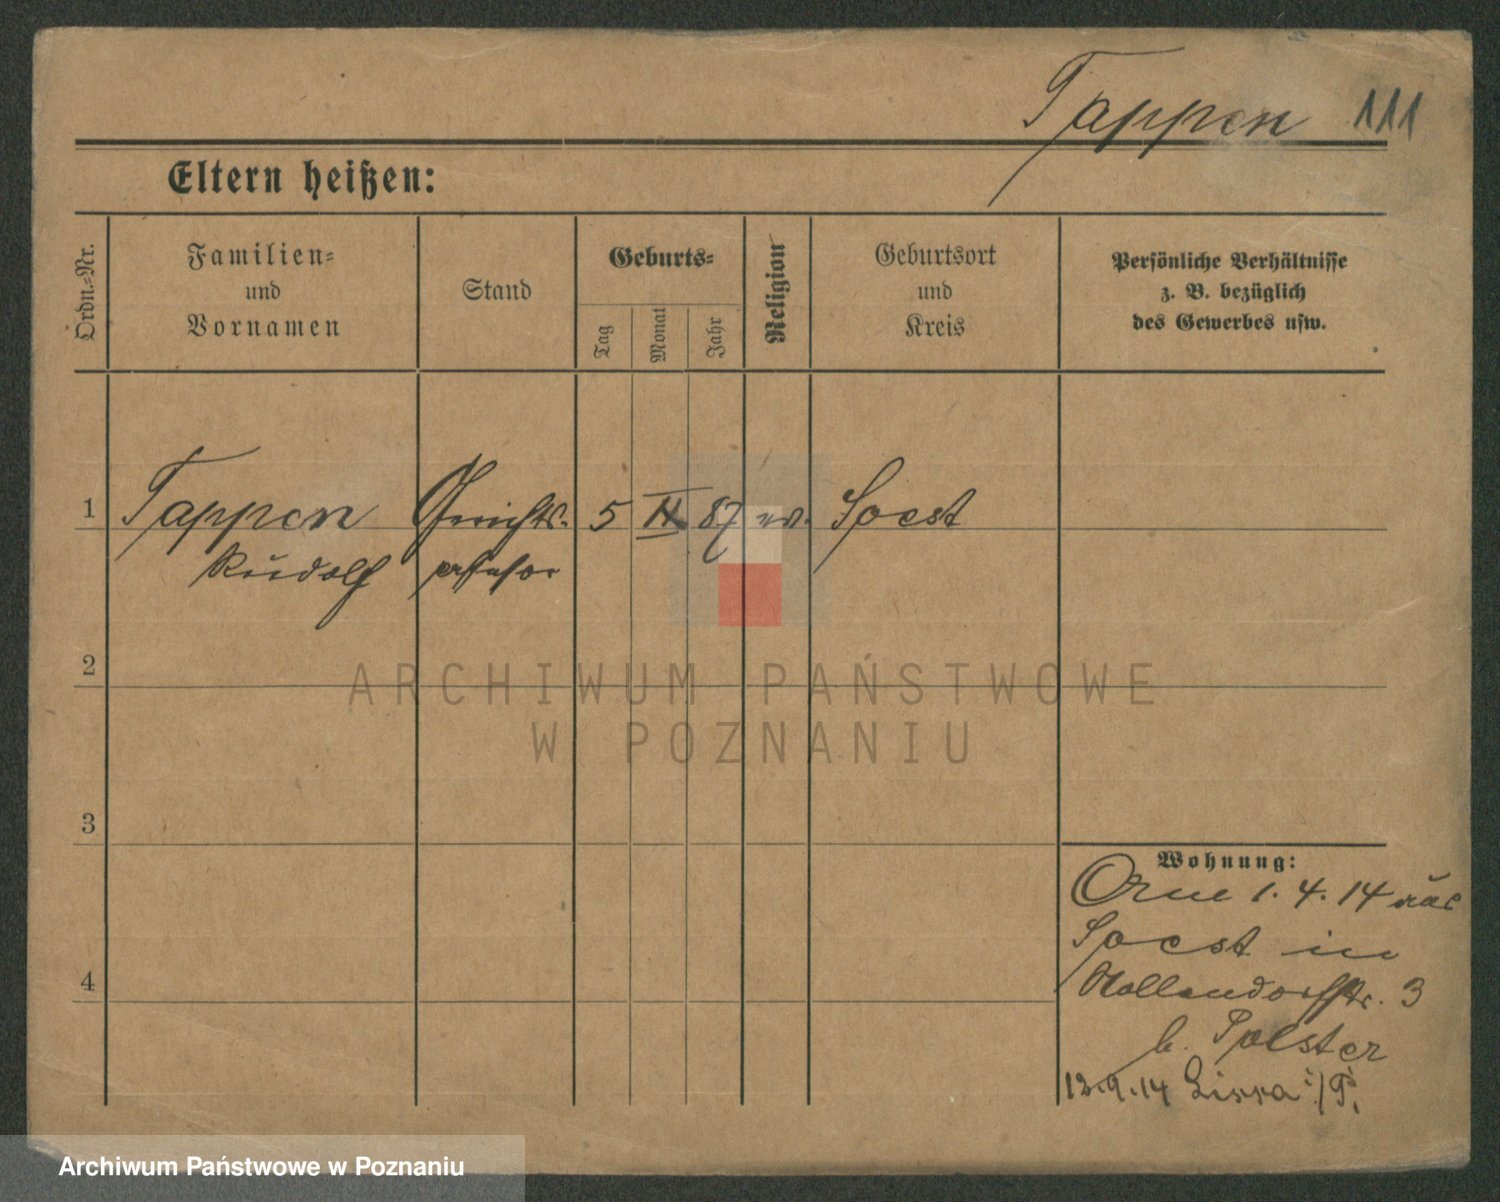 Tappen 111
Eltern heißen:
Ordn.-Nr.
Familien-
und
Vornamen
Stand
Geburts-
Tag
Monat
Jahr
Religion
Geburtsort
und
Kreis
Persönliche Verhältnisse
z. B. bezüglich
des Gewerbes usw.
1 Tappen Gerichts- 5 87 ev. Soest
Rudolf assessor
2
ARCHIWUM PAŃSTWOWE
W POZNANIU
3
Wohnung:
1.4.14 aus
Soest in
Nollendorfstr. 3
b. Polster
4
12.9.14 Lissa i/P.
Archiwum Państwowe w Poznaniu